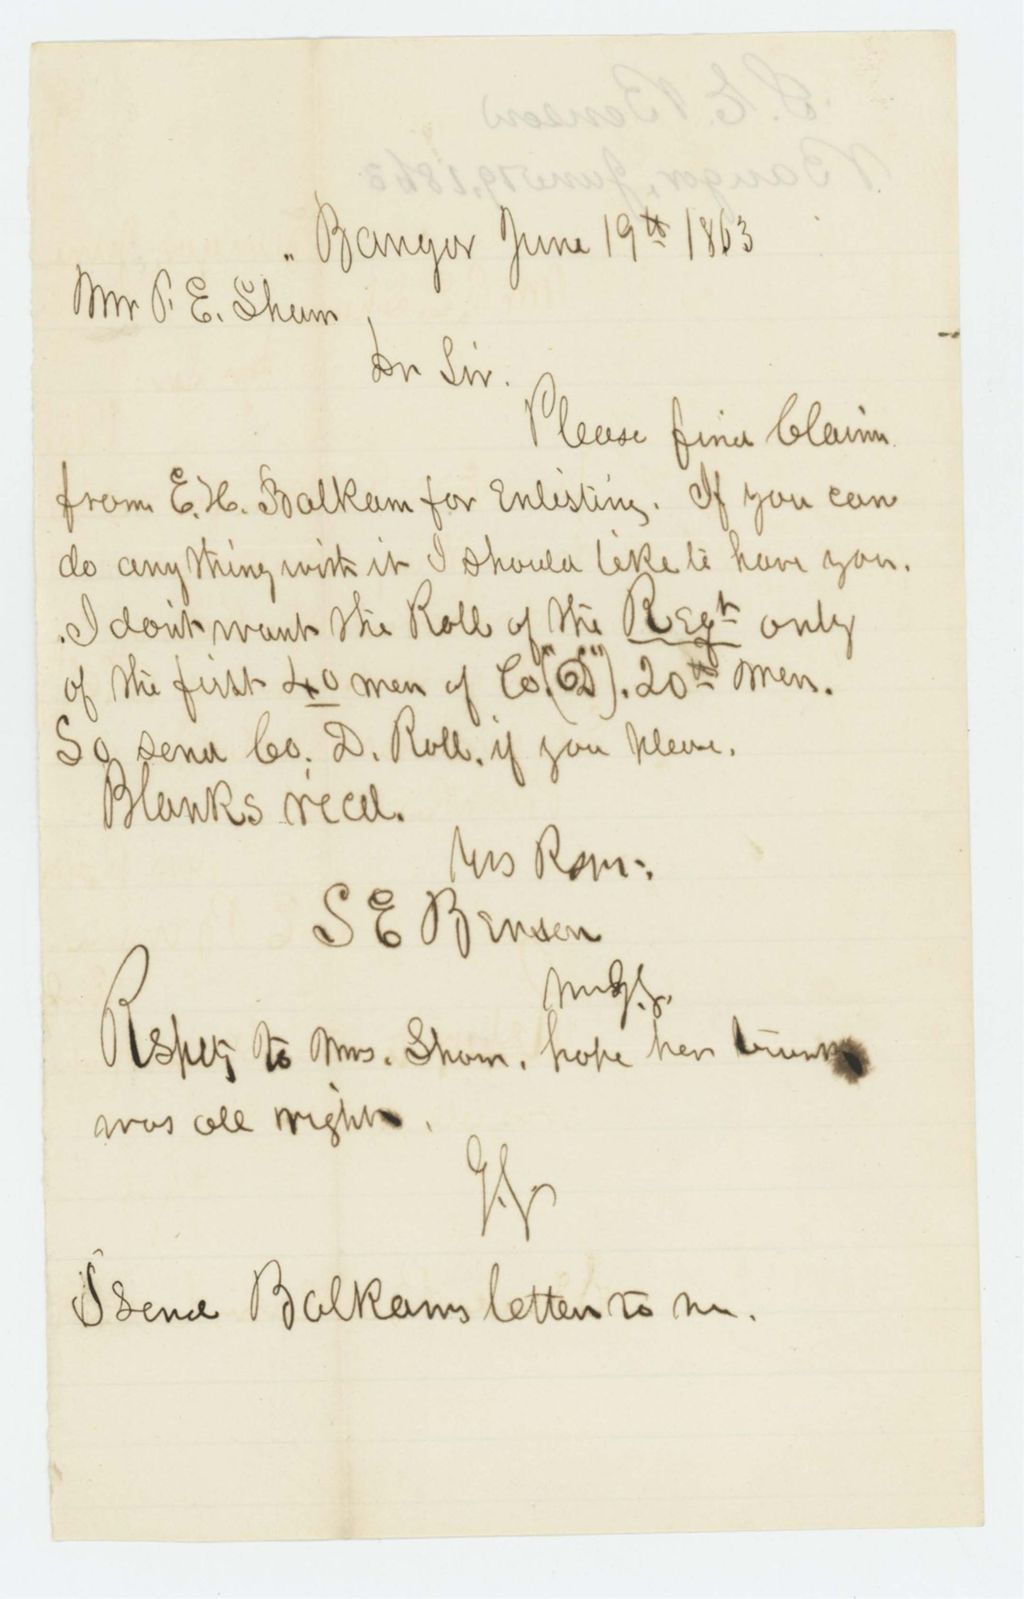 Bangor June 19th 1863
Mr P. E. Sham
Dr Sir.
Please find Claim
from E. H. Balkam for Enlisting. If you can
do anything with it I should like to have you.
I don't want the Roll of the Regt only
of the first 40 men of Co. ("D"). 20th Men.
So send Co. D. Roll. if you please.
Blanks recd.
Yrs Resp.
S E Benson
Respets to Mrs. Sham. hope her trunk
was all right.
I send Balkams letter to me.
S. E. Benson
Bangor, June 19, 1863